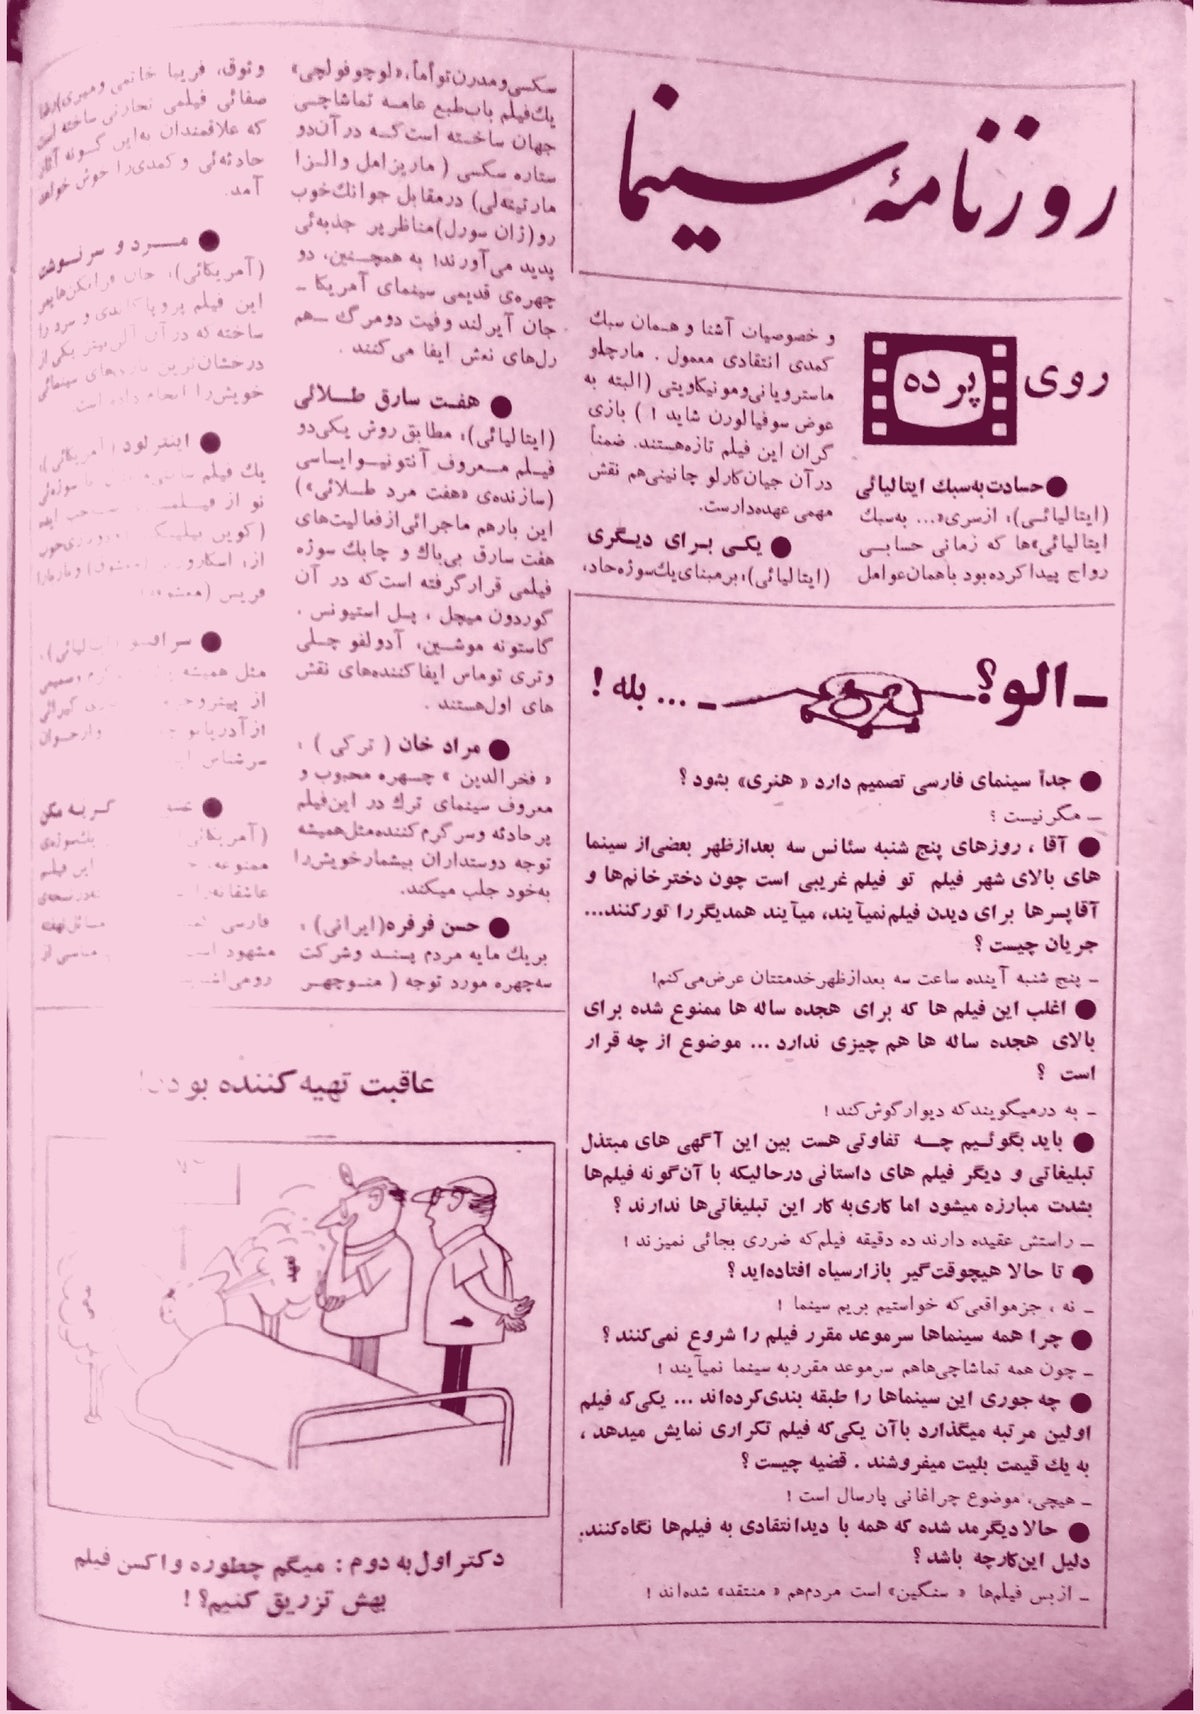 روزنامهٔ سینما
روی پرده
● حسادت به‌سبك ایتالیائی
(ایتالیائی)؛ ازسری«... به‌سبك
ایتالیائی»ها که زمانی حسابی
رواج پیدا کرده‌بود با همان عوامل
و خصوصیات آشنا و همان سبك
کمدی انتقادی معمول . مارچلو
ماسترویانی‌ومونیکاویتی (البته به
عوض سوفیالورن شاید ! ) بازی
گران این فیلم تازه‌هستند. ضمناً
درآن جیان‌کارلو جانینی‌هم نقش
مهمی عهده‌دارست.
● یکی برای دیگری
(ایتالیائی)؛ برمبنای یك‌سوژه‌حاد،
سکسی‌ومدرن‌توأماً، «لوچوفولچی»
یك‌فیلم باب‌طبع عامه تماشاچی
جهان ساخته است‌که در آن‌دو
ستاره سکسی ( ماریزامل و الزا
مارتینه‌لی) درمقابل جوانك‌خوب
رو(ژان سورل)مناظر پر جذبه‌ئی
پدید می‌آورند! به همچنین، دو
چهره‌ی قدیمی سینمای آمریکا ـ
جان آیرلند وفیت دومرگ ـ هم
رل‌های نعش ایفا می‌کنند .
● هفت سارق طلائی
(ایتالیائی)؛ مطابق روش یکی‌دو
فیلم معروف آنتونیوایساسی
(سازنده‌ی «هفت مرد طلائی»)
این بارهم ماجرائی‌ازفعالیت‌های
هفت سارق بی‌باك و چابك سوژه
فیلمی قرارگرفته است‌که در آن
گوردون میچل ، پل استیونس ،
گاستونه موشین، آدولفو چلی
وتری توماس ایفاکننده‌های نقش
های اول‌هستند .
● مراد خان ( ترکی ) ؛
« فخرالدین » چهره محبوب و
معروف سینمای ترك در این‌فیلم
پرحادثه وسرگرم کننده‌مثل‌همیشه
توجه دوستداران بیشمارخویش‌را
به‌خود جلب میکند.
● حسن فرفره(ایرانی) ؛
بریك مایه مردم پسند وشرکت
سه‌چهره مورد توجه ( منوچهر
وثوق، فریبا خاتمی و میری)رضا
صفائی فیلمی تجارتی ساخته است
که علاقمندان به‌این گونه آثار
حادثه‌ئی و کمدی‌را خوش خواهد
آمد.
● مرد و سرنوشت
(آمریکائی)؛ جان فرانکن‌هایمر
این فیلم پروپاگاندی و سرد را
ساخته که در آن آلن‌بیتز یکی‌از
درخشان‌ترین بازی‌های سینمائی
خویش‌را انجام داده است
● اینترلود (آمریکائی)؛
یك فیلم
نو از
(کویین
از؛ اسکاروورنر
● سرافینو
مثل همیشه
از پیترو
●
(آمریکائی)
ممنوعه
عاشقانه
فارسی
مشهود
ـ الو؟ ـ ... بله !
● جداً سینمای فارسی تصمیم دارد « هنری» بشود ؟
ـ مگرنیست ؟
● آقا ، روزهای پنج شنبه سئانس سه بعدازظهر بعضی‌از سینما
های بالای شهر فیلم تو فیلم غریبی است چون دخترخانم‌ها و
آقاپسرها برای دیدن فیلم‌نمیآیند، میآیند همدیگررا تورکنند...
جریان چیست ؟
ـ پنج شنبه آینده ساعت سه بعدازظهرخدمتتان عرض‌می‌کنم!
● اغلب این فیلم ها که برای هجده ساله ها ممنوع شده برای
بالای هجده ساله ها هم چیزی ندارد ... موضوع از چه قرار
است ؟
ـ به درمیگویندکه دیوارگوش‌کند !
● باید بگوئیم چه تفاوتی هست بین این آگهی های مبتذل
تبلیغاتی و دیگر فیلم های داستانی درحالیکه با آن‌گونه فیلم‌ها
بشدت مبارزه میشود اما کاری‌به کار این تبلیغاتی‌ها ندارند ؟
ـ راستش عقیده دارند ده دقیقه فیلم‌که ضرری بجائی نمیزند !
● تا حالا هیچوقت‌گیر بازارسیاه افتاده‌اید ؟
ـ نه ، جزمواقعی‌که خواستیم بریم سینما !
● چرا همه سینماها سرموعد مقرر فیلم را شروع نمی‌کنند ؟
ـ چون همه تماشاچی‌هاهم سرموعد مقرربه سینما نمیآیند !
● چه جوری این سینماها را طبقه بندی‌کرده‌اند ... یکی‌که فیلم
اولین مرتبه میگذارد باآن یکی‌که فیلم تکراری نمایش میدهد ،
به یك قیمت بلیت میفروشند . قضیه چیست ؟
ـ هیچی، موضوع چراغانی پارسال است !
● حالا دیگرمد شده که همه با دیدانتقادی به فیلم‌ها نگاه‌کنند.
دلیل این‌کارچه باشد ؟
ـ ازبس فیلم‌ها « سنگین» است مردم‌هم « منتقد» شده‌اند !
عاقبت تهیه کننده بودن!
دکتراول به دوم : میگم چطوره واکسن فیلم
بهش تزریق کنیم؟ !